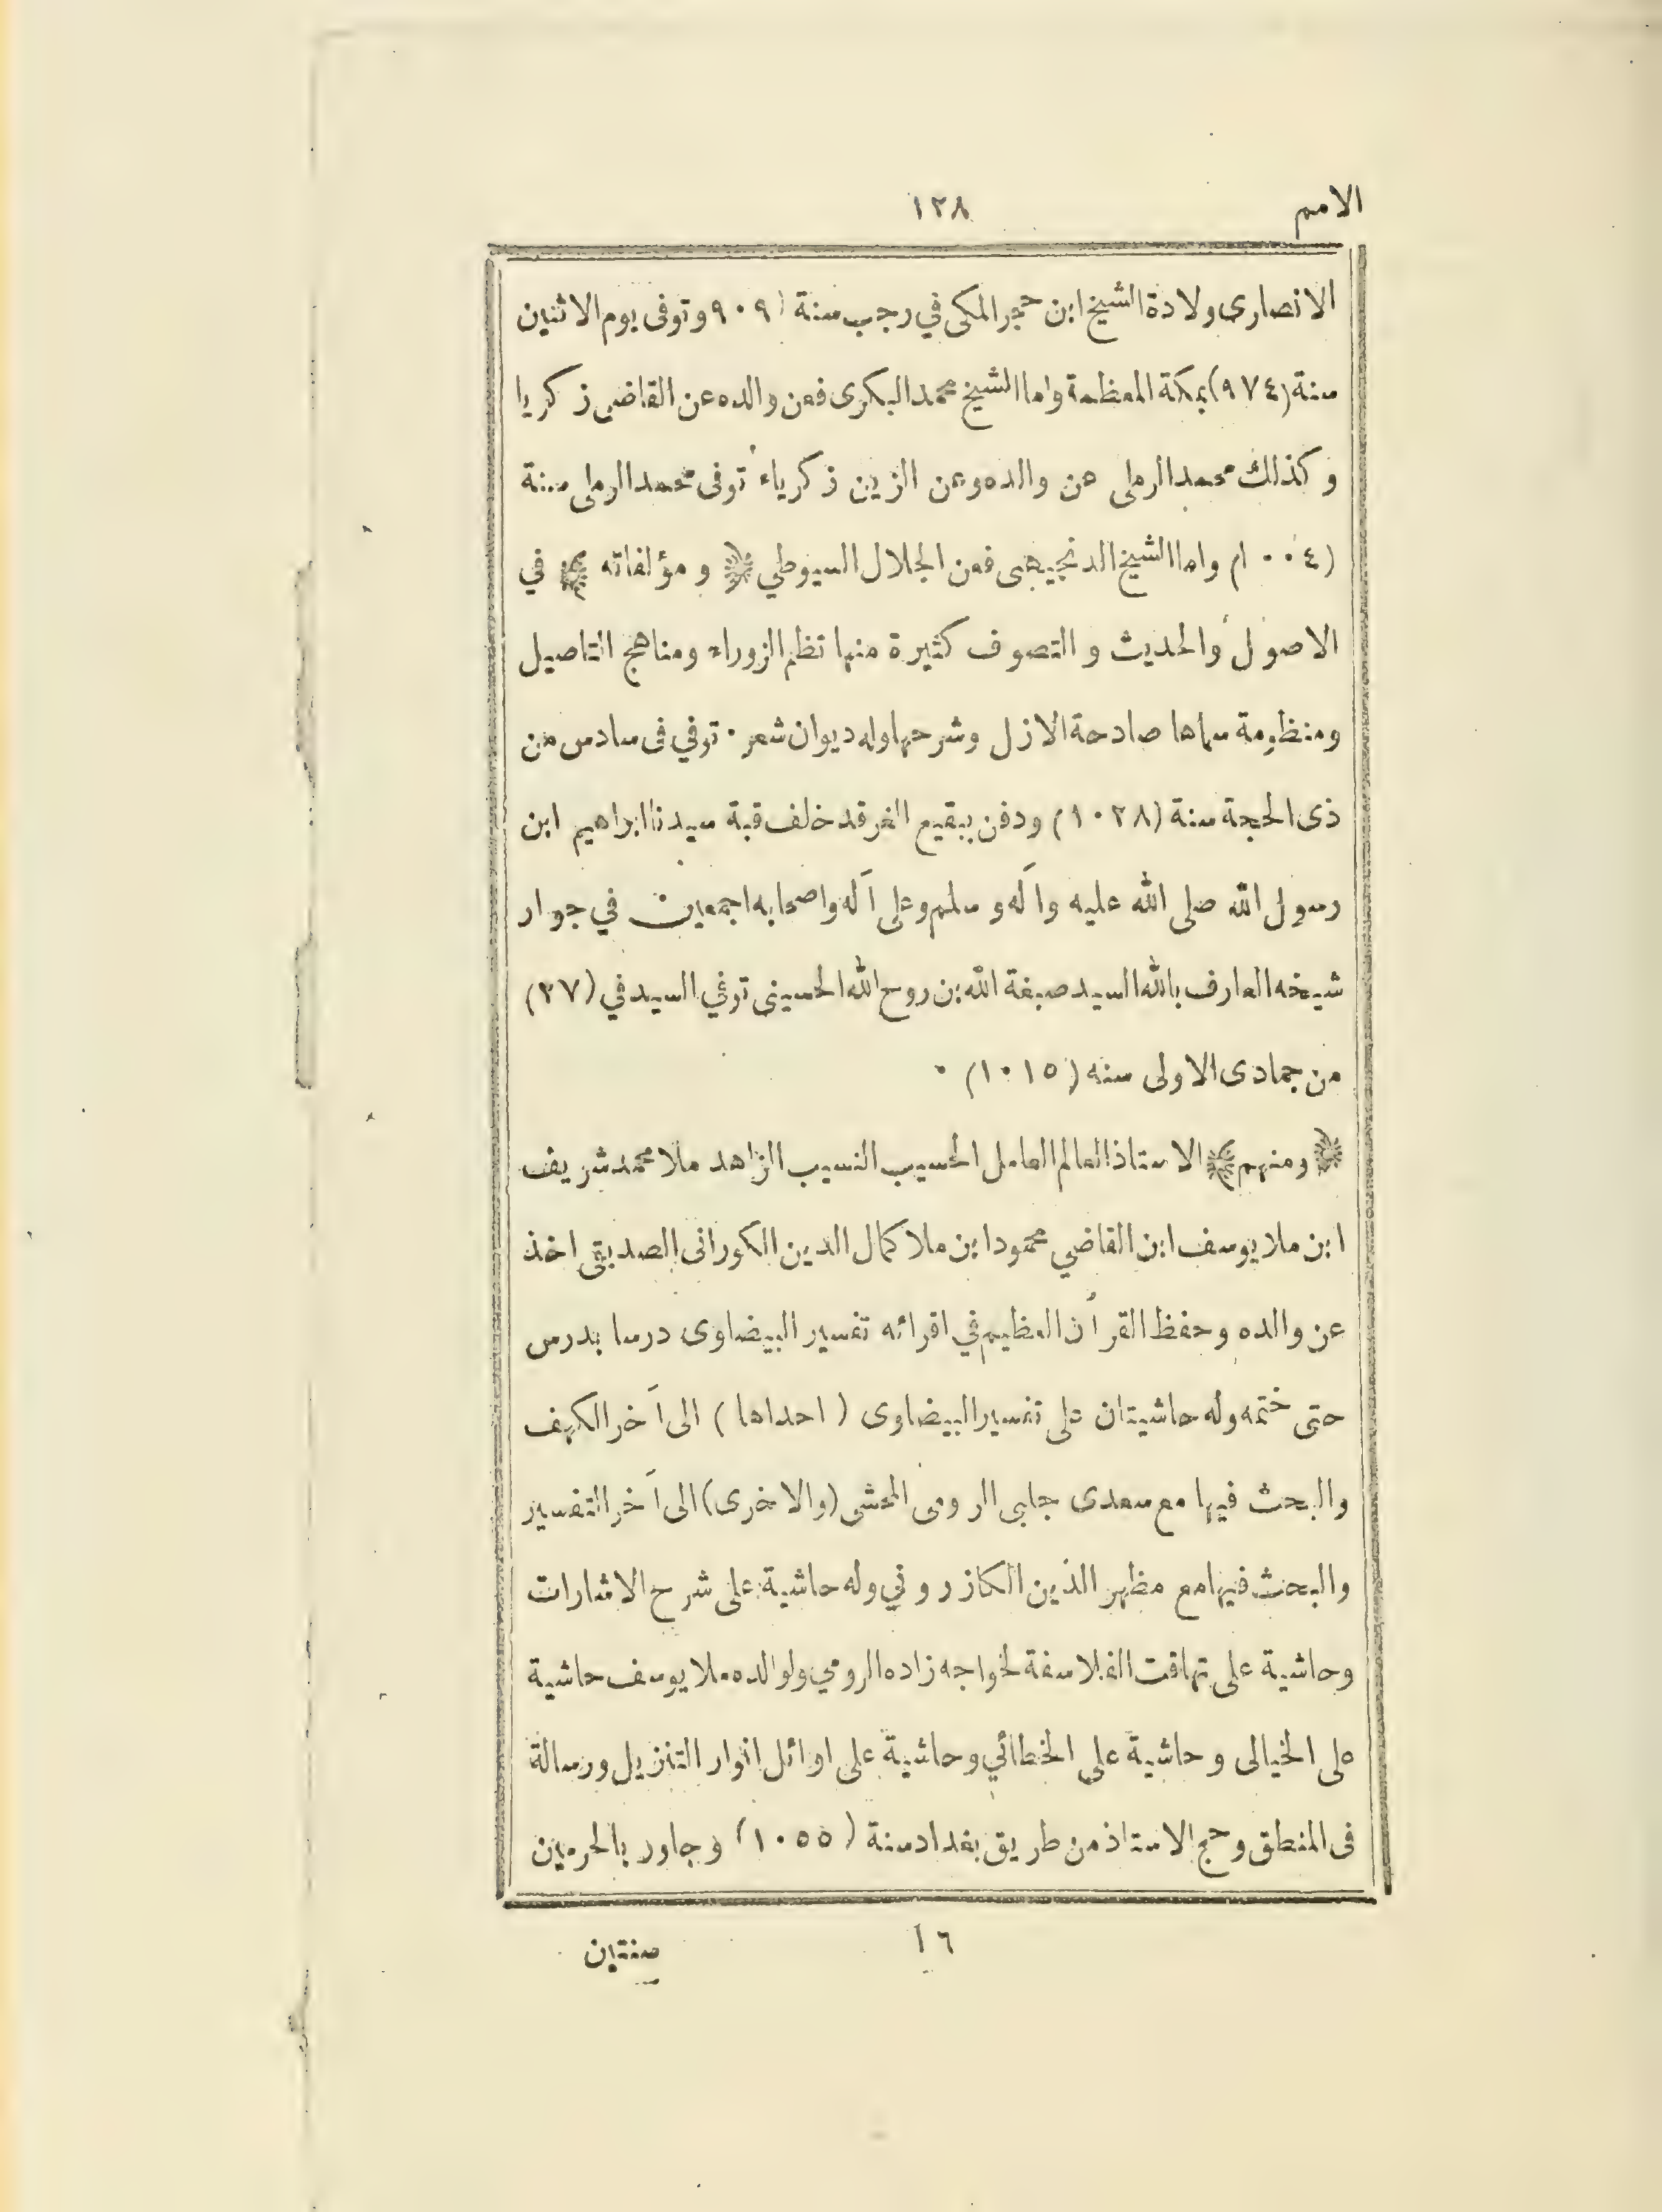 الامم
١٢٨
الانصارى ولادة الشيخ ابن حجر المكى في رجب سنة ٩٠٩ وتوفى يوم الاثنين
سنة (٩٧٤) بمكة المعظمة واما الشيخ محمد البكرى فعن والده عن القاضى زكريا
وكذلك محمد الرملى عن والده وعن الزين زكرياء توفى محمد الرملى سنة
(١٠٠٤) واما الشيخ الدنجيهى فعن الجلال السيوطي ﴿ و مؤلفاته ﴾ في
الاصول والحديث و التصوف كثيرة منها نظم الزوراء ومناهج التاصيل
ومنظومة سماها صادحة الازل وشرحها وله ديوان شعر ٠ توفي فى سادس من
ذى الحجة سنة (١٠٢٨) ودفن ببقيع الغرقد خلف قبة سيدنا ابراهيم ابن
رسول الله صلى الله عليه وآله و سلم وعلى آله واصحابه اجمعين في جوار
شيخه العارف بالله السيد صبغة الله بن روح الله الحسينى توفي السيد في (٢٧)
من جمادى الاولى سنه (١٠١٥) ٠
﴿ ومنهم ﴾ الاستاذ العالم العامل الحسيب النسيب الزاهد ملا محمد شريف
ابن ملا يوسف ابن القاضي محمود ابن ملا كمال الدين الكورانى الصديقى اخذ
عن والده وحفظ القرآن العظيم في اقرائه تفسير البيضاوى درسا بدرس
حتى ختمه وله حاشيتان على تفسير البيضاوى ( احداها ) الى آخر الكهف
والبحث فيها مع سعدى جلبى الرومى المحشى (والاخرى) الى آخر التفسير
والبحث فيها مع مظهر الدين الكازروني وله حاشية على شرح الاشارات
وحاشية على تهافت الفلاسفة لخواجه زاده الرومي ولوالده ملا يوسف حاشية
على الخيالى وحاشية على الخطائي وحاشية على اوائل انوار التنزيل ورسالة
فى المنطق وحج الاستاذ من طريق بغداد سنة (١٠٥٥) وجاور بالحرمين
١٦
سنتين